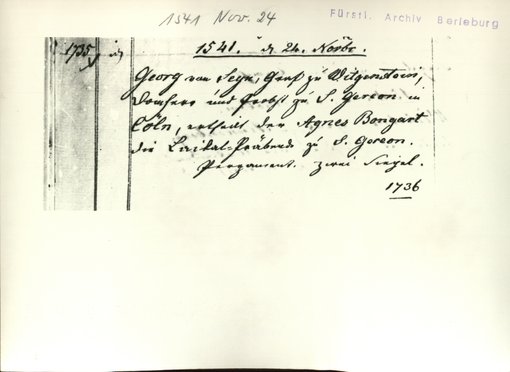 1541 Nov. 24
Fürstl. Archiv Berleburg
1735
1541. d. 24. Novbr.
Georg von Seyn, Graf zu Witgenstein,
Domherr und Probst zu S. Gereon in
Cöln, ertheilt der Agnes Bongart
die Laikal-Präbende zu S. Gereon.
Pergament. zwei Siegel.
1736